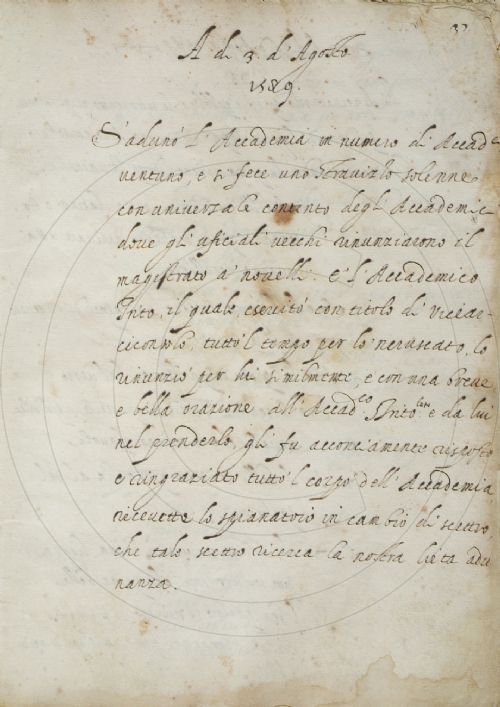 37
A di 3 d'Agosto
1589.
S'adunò l'Accademia in numero di Accad.ci
ventuno, e si fece uno stravizzo solenne
con universale contento degl'Accademici
dove gli uficiali vecchi rinunziarono il
magistrato a' novelli. E l'Accademico
Trito, il quale esercitò con titolo di Vicear
ciconsolo, tutto'l tempo per lo, lo
rinunziò per lui similmente, e con una breve
e bella orazione all'Accad.co e da lui
nel prenderlo, gli fu acconciamente risposto
e ringraziato tutto'l corpo dell'Accademia
ricevette lo spianatoio in cambio di scettro
che tale scettro ricerca la nostra lieta adu
nanza.